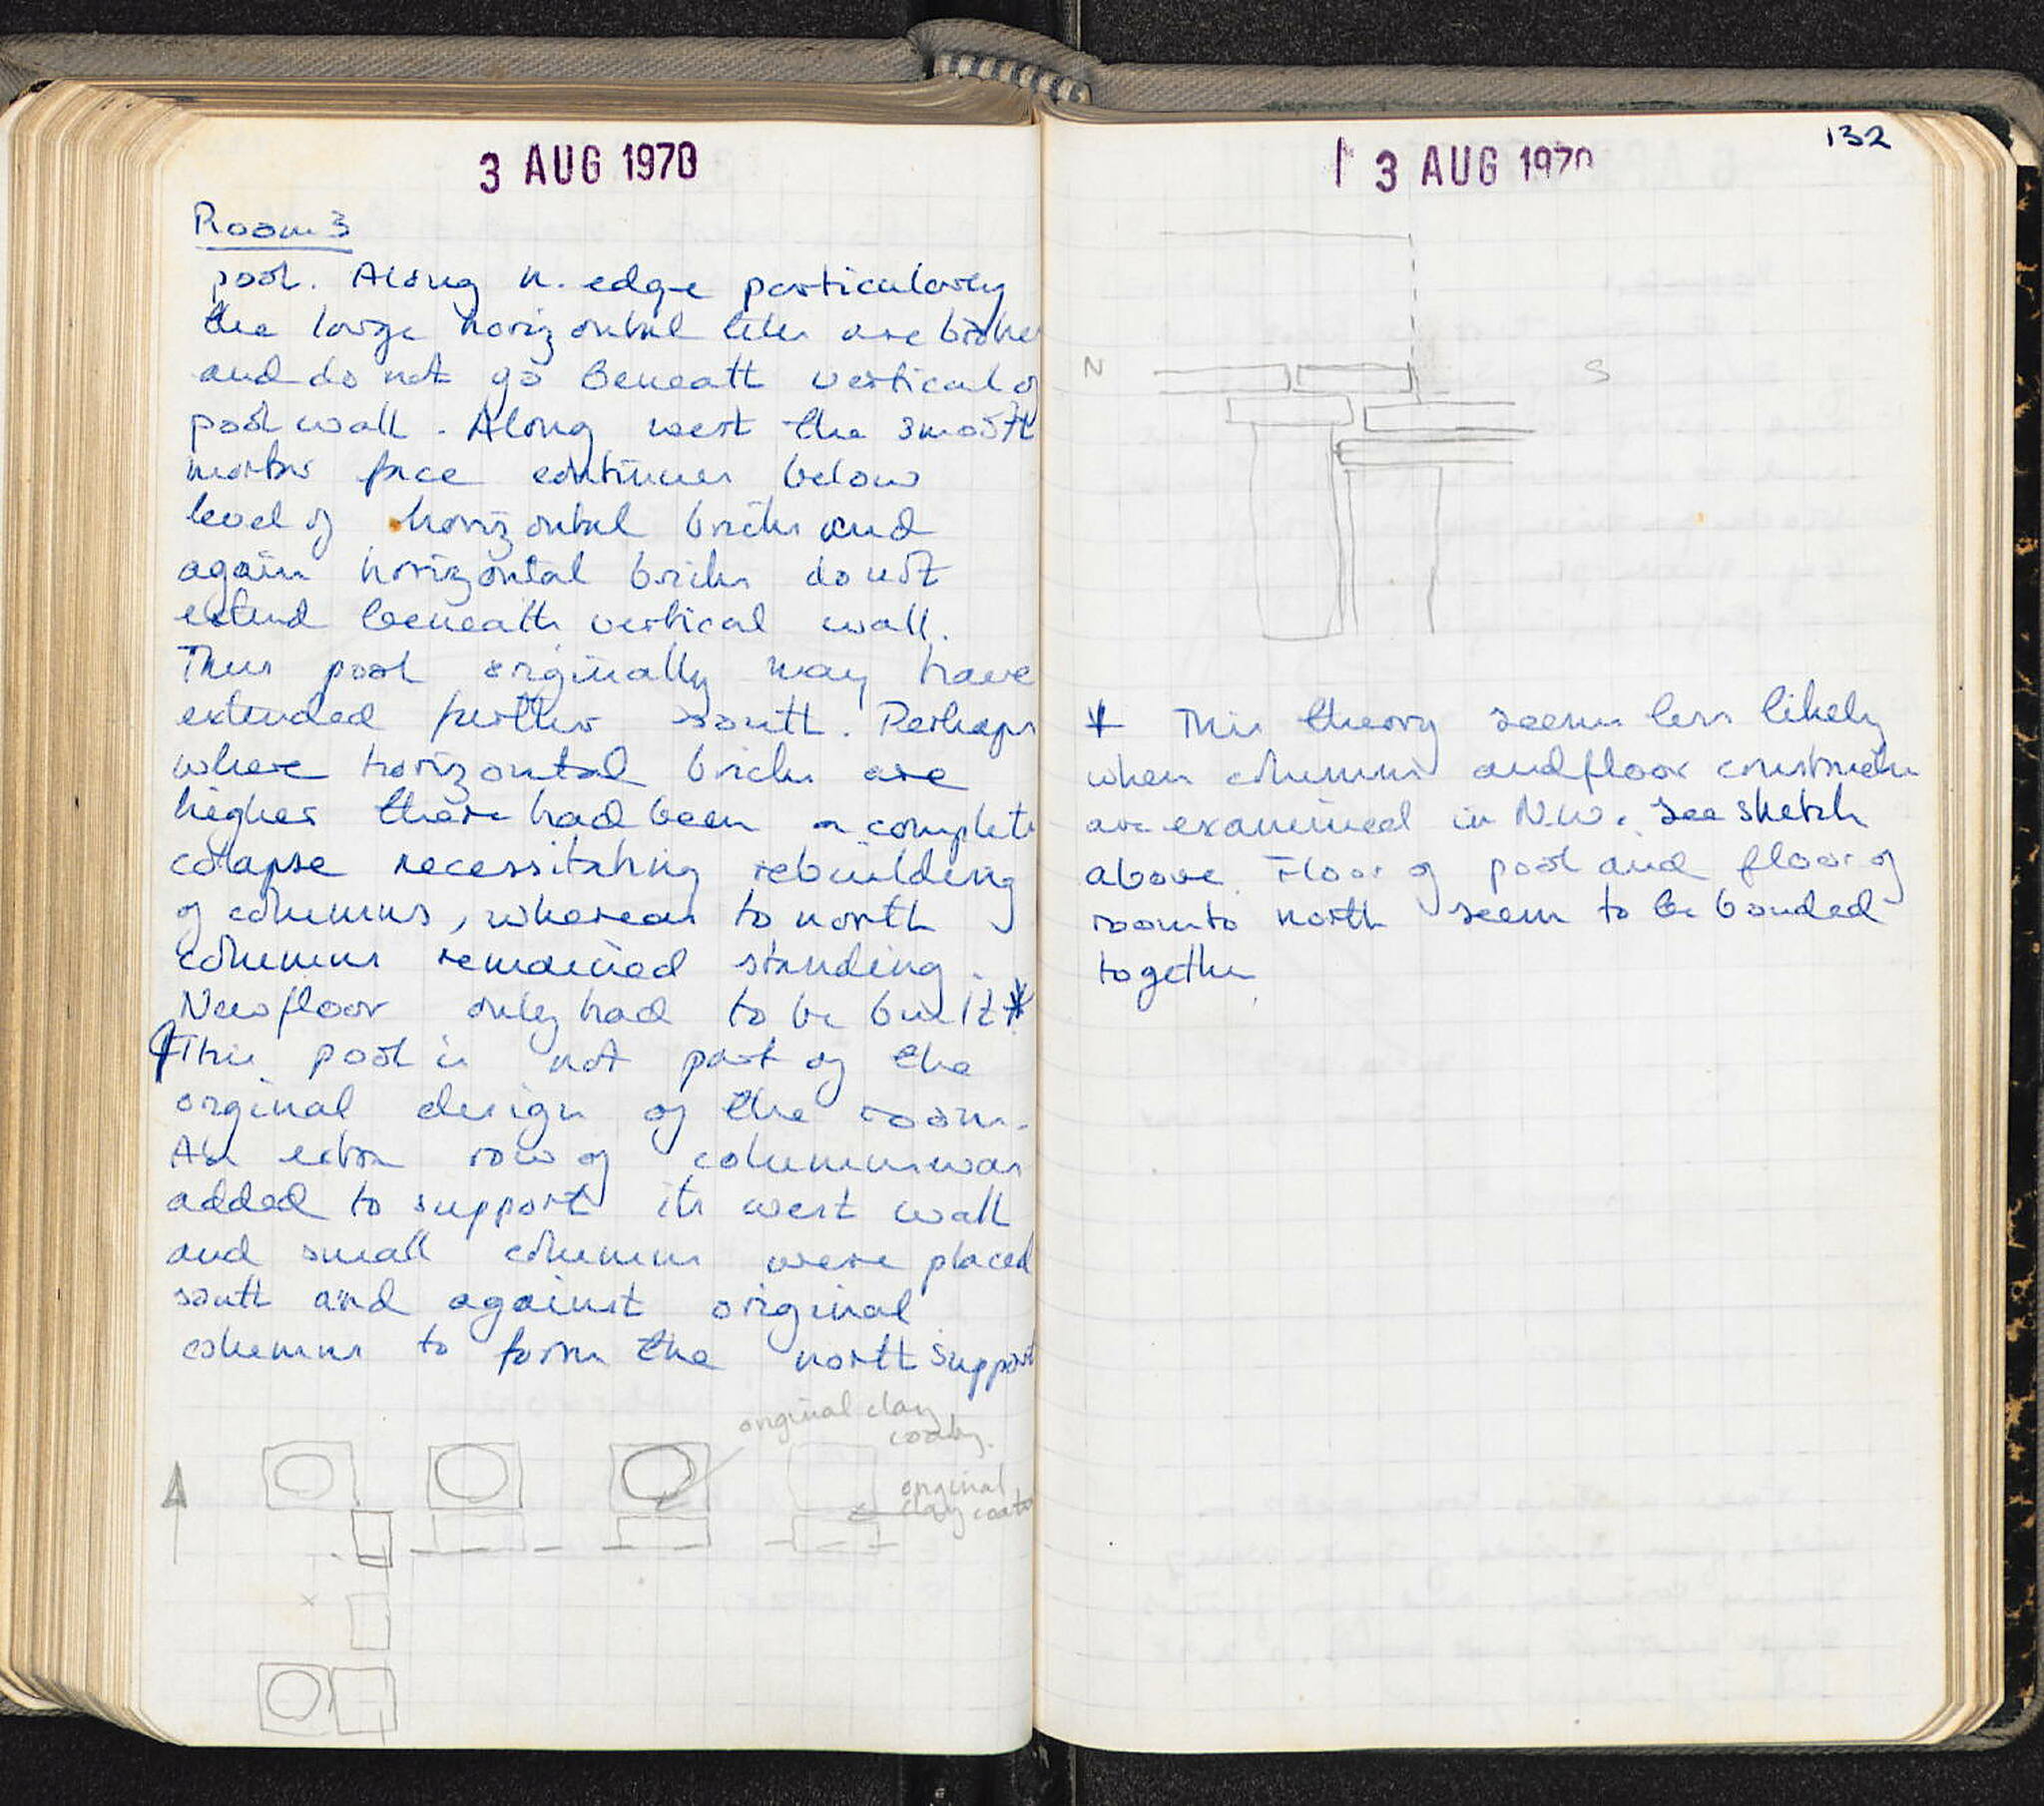 3 AUG 1970
Room 3
pool. Along N. edge particularly
the large horizontal tiles are broken
and do not go beneath vertical of
pool wall. Along west the smooth
mortar face continues below
level of horizontal bricks and
again horizontal bricks do not
extend beneath vertical wall.
Thus pool originally may have
extended further south. Perhaps
where horizontal bricks are
higher there had been a complete
colapse necessitating rebuilding
of columns, whereas to north
columns remained standing.
New floor only had to be built*
This pool is not part of the
orginal design of the room.
An extra row of columns was
added to support its west wall
and small columns were placed
south and against original
columns to form the north support
original clay
coating.
original
clay coating
132
3 AUG 1970
N S
* This theory seems less likely
when columns and floor construction
are examined in N.W. See sketch
above. Floor of pool and floor of
room to north seem to be bonded
together